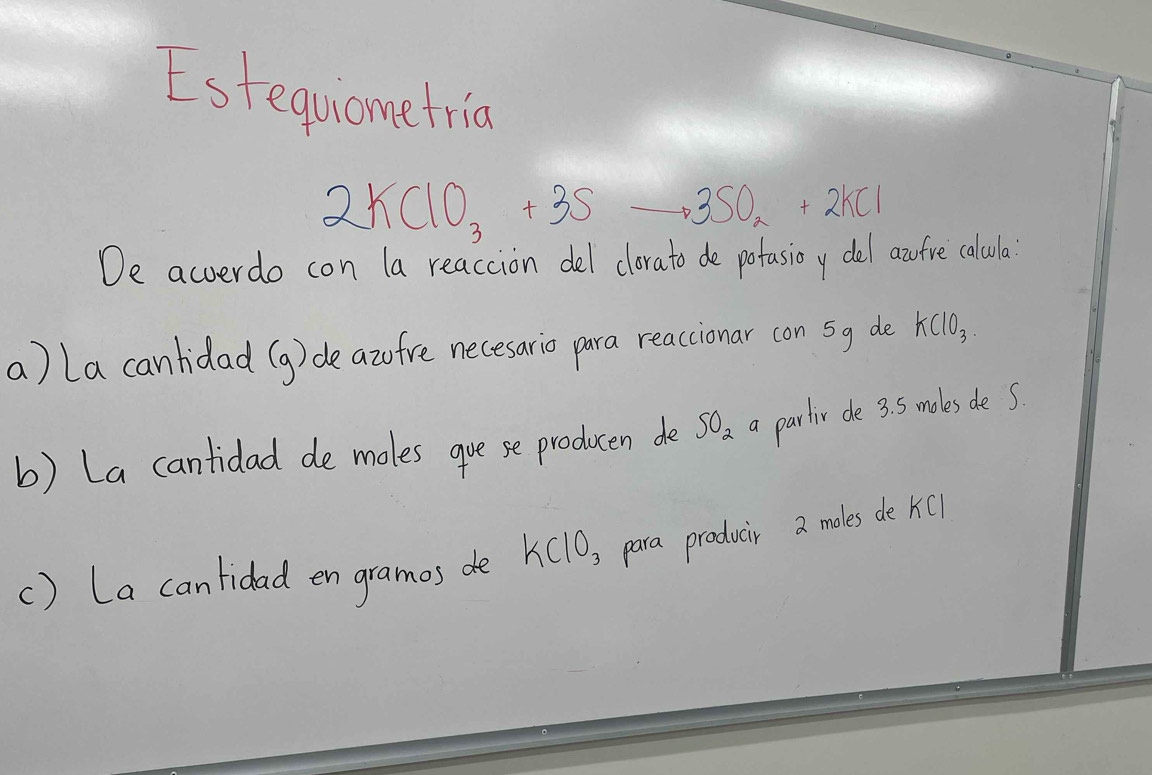 Estequiometría
2KClO₃ + 3S → 3SO₂ + 2KCl
De acuerdo con la reacción del clorato de potasio y del azufre calcula:
a) La cantidad (g) de azufre necesario para reaccionar con 5g de KClO₃.
b) La cantidad de moles que se producen de SO₂ a partir de 3.5 moles de S.
c) La cantidad en gramos de KClO₃ para producir 2 moles de KCl